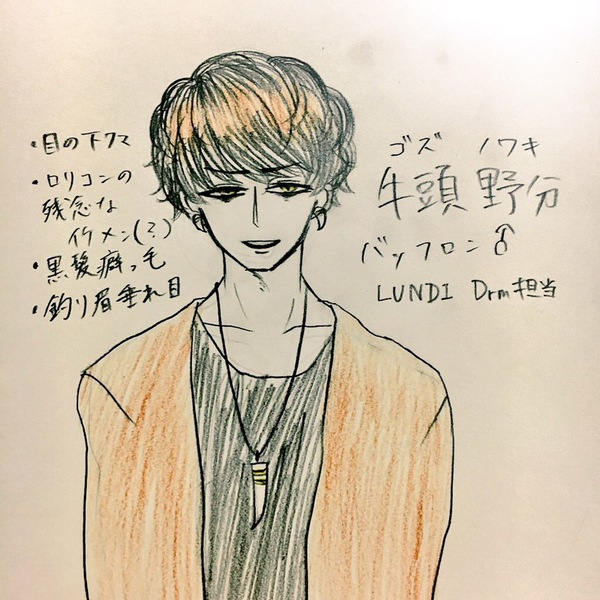 ・目の下クマ
・ロリコンの
残念な
イケメン(?)
・黒髪癖っ毛
・釣り眉垂れ目
ゴズ ノワキ
牛頭 野分
バッフロン♂
LUNDI Drm担当